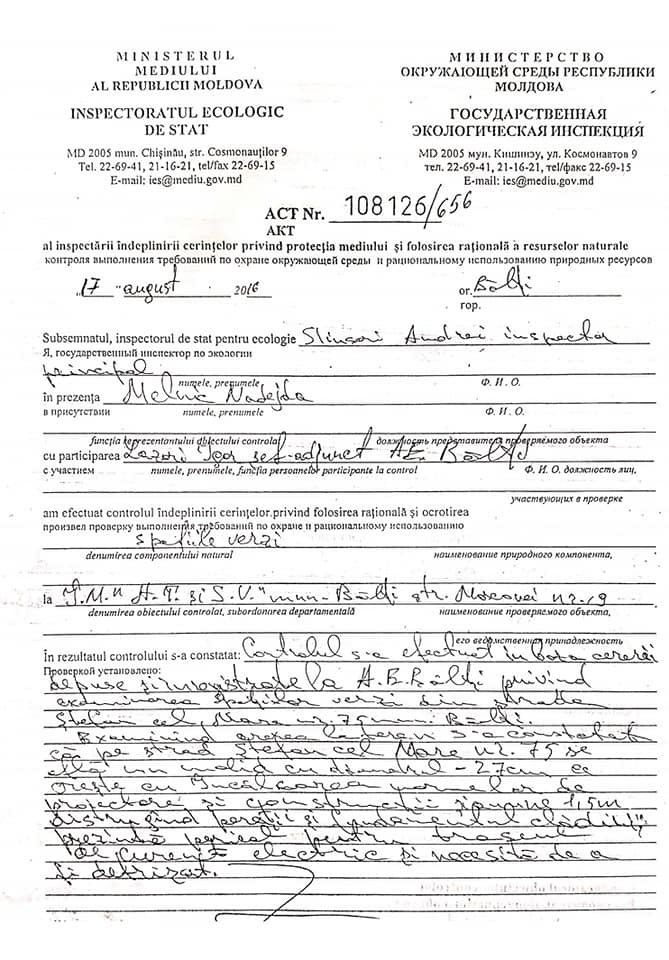 MINISTERUL
MEDIULUI
AL REPUBLICII MOLDOVA
INSPECTORATUL ECOLOGIC
DE STAT
MD 2005 mun. Chişinău, str. Cosmonauţilor 9
Tel. 22-69-41, 21-16-21, tel/fax 22-69-15
E-mail: ies@mediu.gov.md
МИНИСТЕРСТВО
ОКРУЖАЮЩЕЙ СРЕДЫ РЕСПУБЛИКИ
МОЛДОВА
ГОСУДАРСТВЕННАЯ
ЭКОЛОГИЧЕСКАЯ ИНСПЕКЦИЯ
MD 2005 мун. Кишинэу, ул. Космонавтов 9
тел. 22-69-41, 21-16-21, тел/факс 22-69-15
E-mail: ies@mediu.gov.md
ACT Nr. 108126/656
АКТ
al inspectării îndeplinirii cerinţelor privind protecţia mediului şi folosirea raţională a resurselor naturale
контроля выполнения требований по охране окружающей среды и рациональному использованию природных ресурсов
„17" august 2016 or. Bălţi
гор.
Subsemnatul, inspectorul de stat pentru ecologie Andrei inspector
Я, государственный инспектор по экологии
principal
numele, prenumele Ф. И. О.
în prezenţa Melnic Nadejda
в присутствии numele, prenumele Ф. И. О.
funcţia reprezentantului obiectului controlat должность представителя проверяемого объекта
cu participarea Lazari Igor şef-adjunct A.E. Bălţi
с участием numele, prenumele, funcţia persoanelor participante la control Ф. И. О. должность лиц,
участвующих в проверке
am efectuat controlul îndeplinirii cerinţelor.privind folosirea raţională şi ocrotirea
произвел проверку выполнения требований по охране и рациональному использованию
spaţiile verzi
denumirea componentului natural наименование природного компонента,
la Î.M." A.T. şi S.V." mun. Bălţi str. Moscovei nr. 19
denumirea obiectului controlat, subordonarea departamentală наименование проверяемого объекта,
его ведомственная принадлежность
În rezultatul controlului s-a constatat: Controlul s-a efectuat în baza cererii
Проверкой установлено:
depuse şi înregistrate la A.E. Bălţi privind
examinarea spaţiilor verzi din strada
Ştefan cel Mare nr. 75 mun. Bălţi.
Examinînd s-a constatat
că pe strad Ştefan cel Mare nr. 75 se
află un molid cu diametrul - 27cm ce
creşte cu încălcarea normelor de
proiectare şi construcţii 1,5m
distrugînd pereţii şi fundamentul clădirii,
prezintă pericol pentru
de curent electric şi necesită de a
fi defrişat.